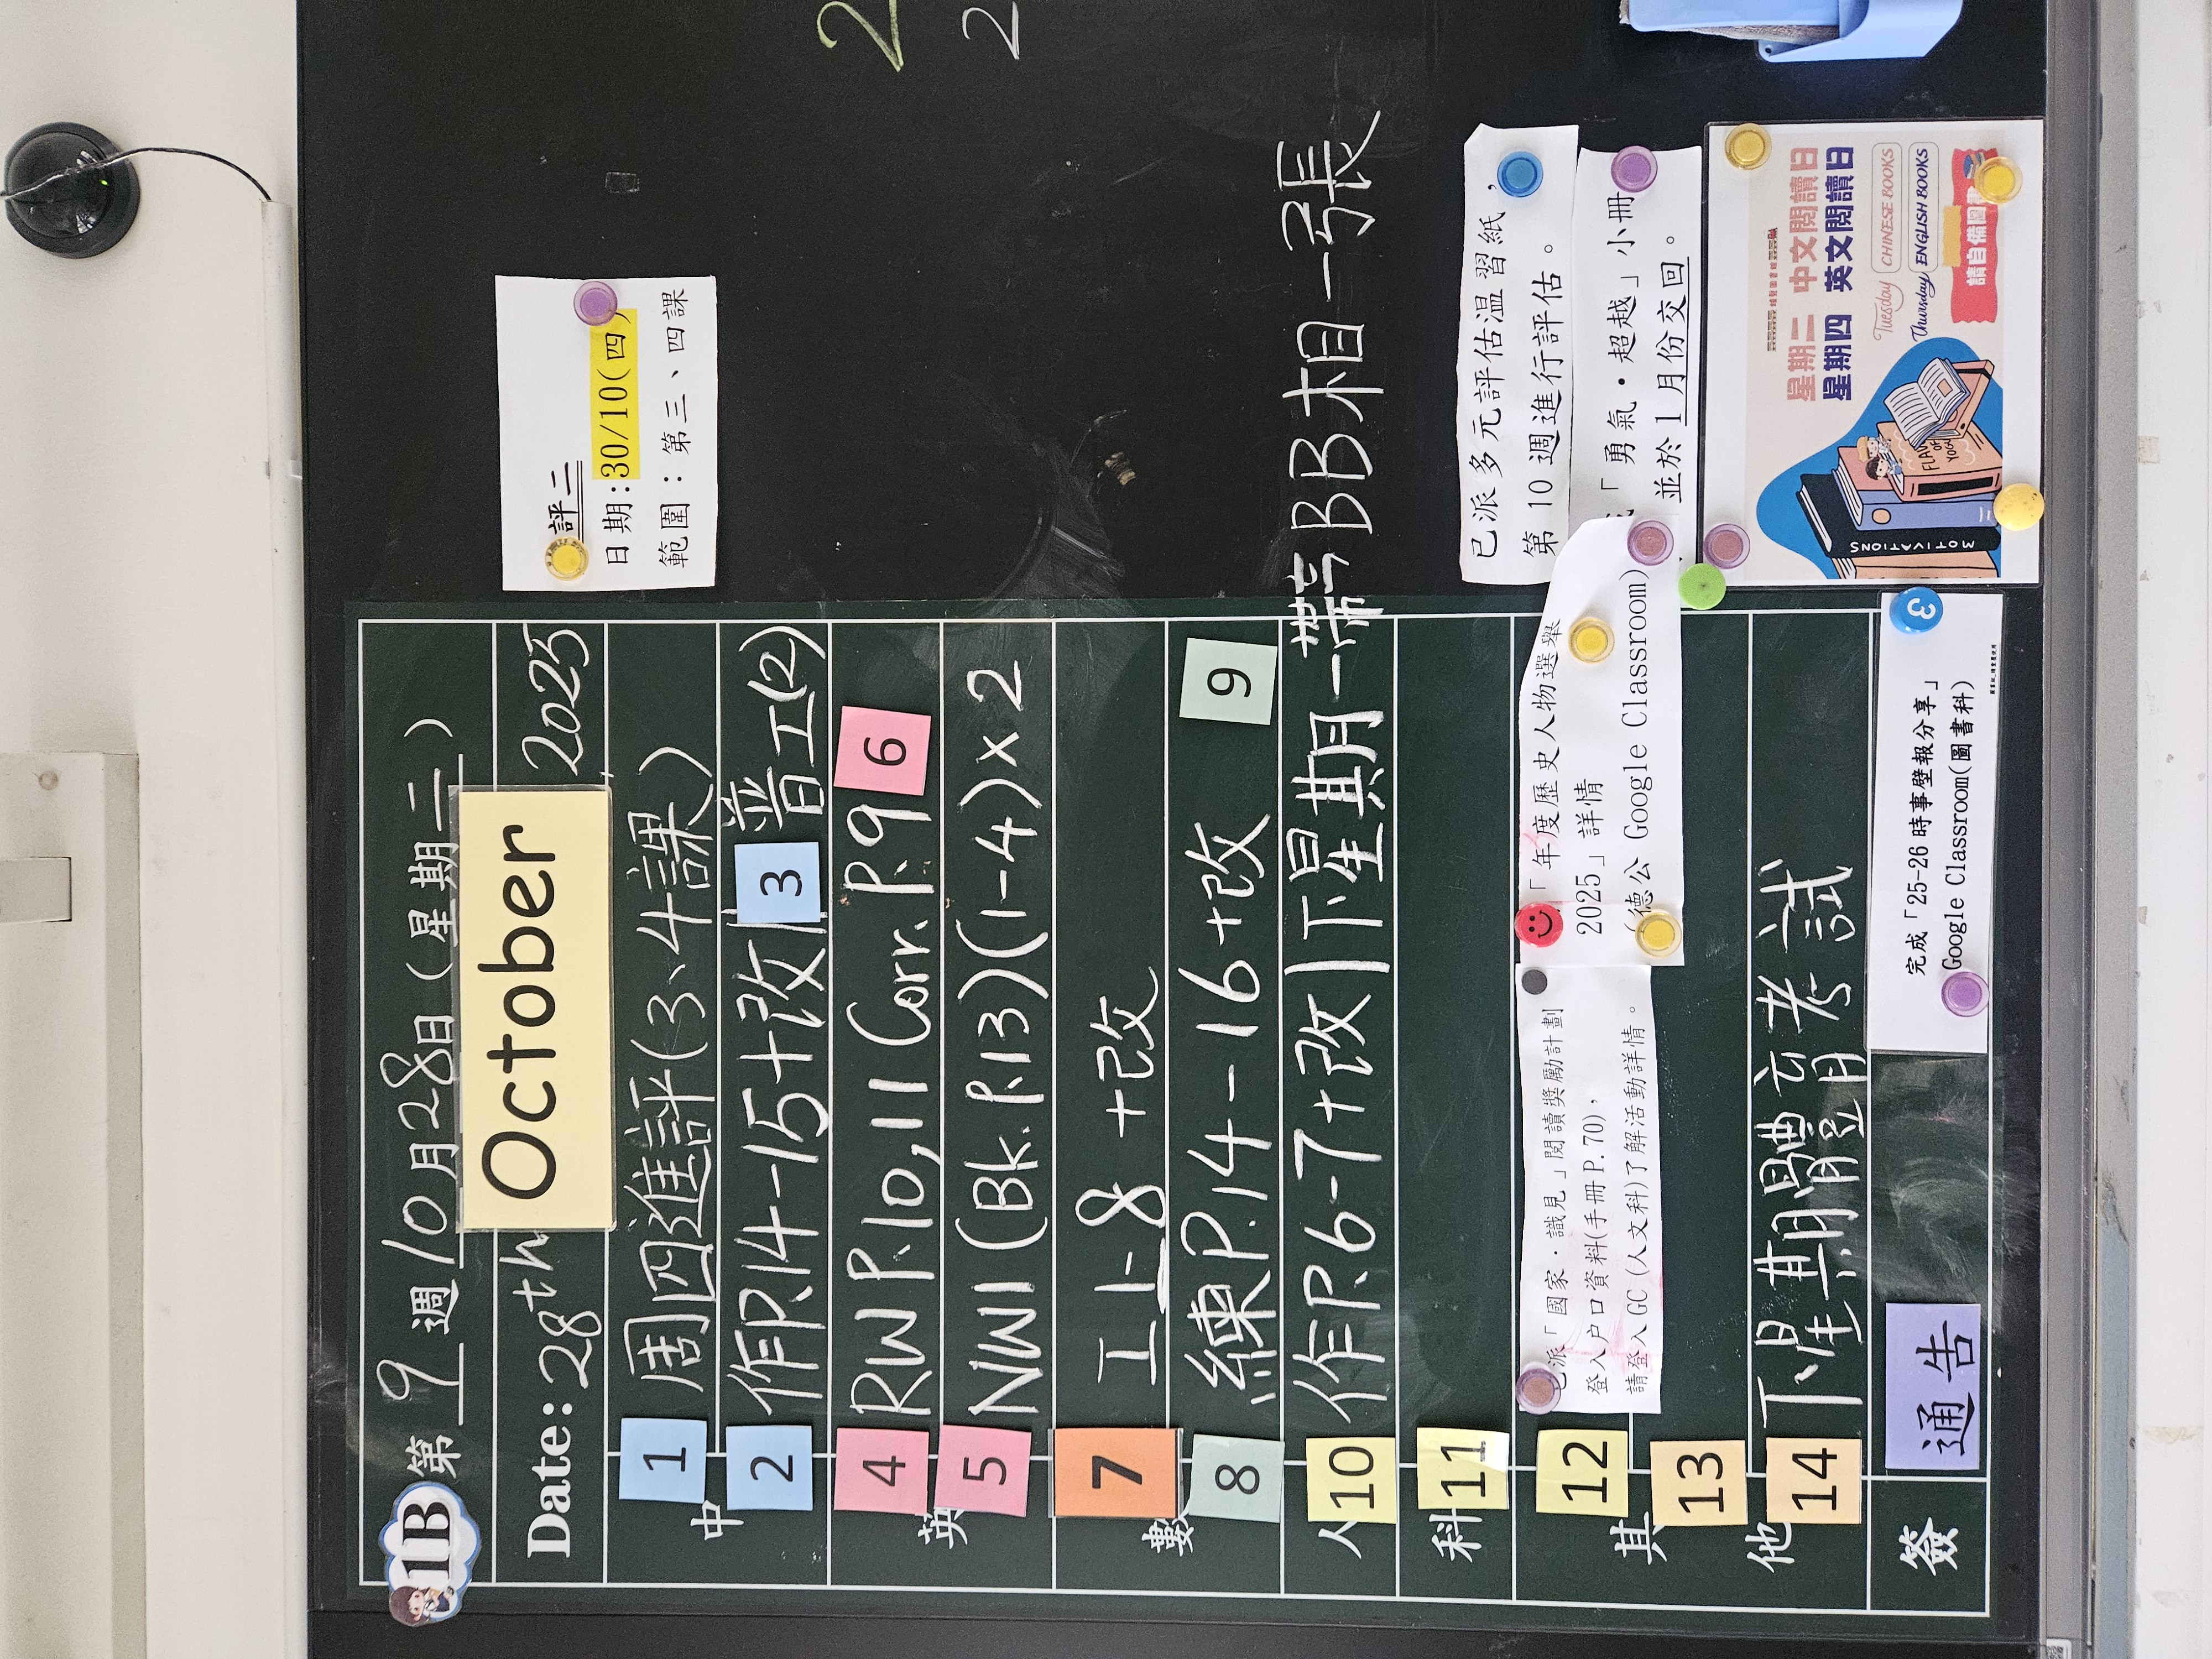 1B 第 9 週 10月28日(星期二)
Date: 28th October 2025
中
1 周四進評(3、4課)
2 作P.14-15+改 3 普工(2)
英
4 RW P.10,11 Corr. P.9 6
5 NW1 (Bk. P.13)(1-4)x2
數
7 工上8 +改
8 練P.14-16+改 9
人
10 作P.6-7+改 下星期一帶BB相一張
科
11
其他
12 派「國家·識見」閱讀獎勵計劃
登入户口資料(手冊P.70),
請登入GC(人文科)了解活動詳情。
「年度歷史人物選舉
2025」詳情
(德公 Google Classroom)
13
14 下星期體育考試
簽
通告
完成「25-26時事壁報分享」
Google Classroom(圖書科)
3
評二
日期:30/10(四)
範圍:第三、四課
2
2
已派多元評估温習紙,
第10週進行評估。
「勇氣·超越」小冊
並於1月份交回。
星期二 中文閱讀日
星期四 英文閱讀日
Tuesday CHINESE BOOKS
Thursday ENGLISH BOOKS
請自備圖
MOTIVATIONS